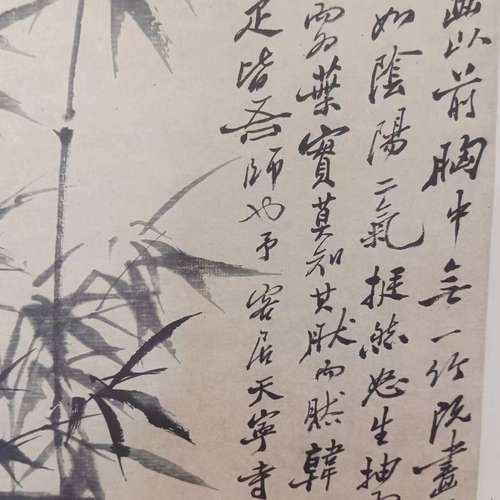 畫以前胸中無一竹既畫
如陰陽二氣挺然怒生抽
而為葉實莫知其然而然韓
疋皆吾師也予客居天寧寺